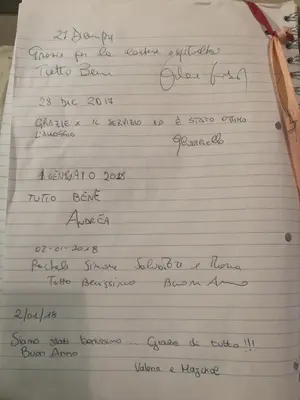 Grazie per la vostra ospitalità
Tutto Bene
28 DIC 2017
GRAZIE X IL SERVIZIO ED È STATO OTTIMO
L'ALLOGGIO
1 GENNAIO 2018
TUTTO BENE
ANDREA
02-01-2018
Simone Salvatore e
Tutto Benissimo Buon Anno
2/01/18
Siamo stati benissimo... Grazie di tutto!!!
Buon Anno
Valeria e